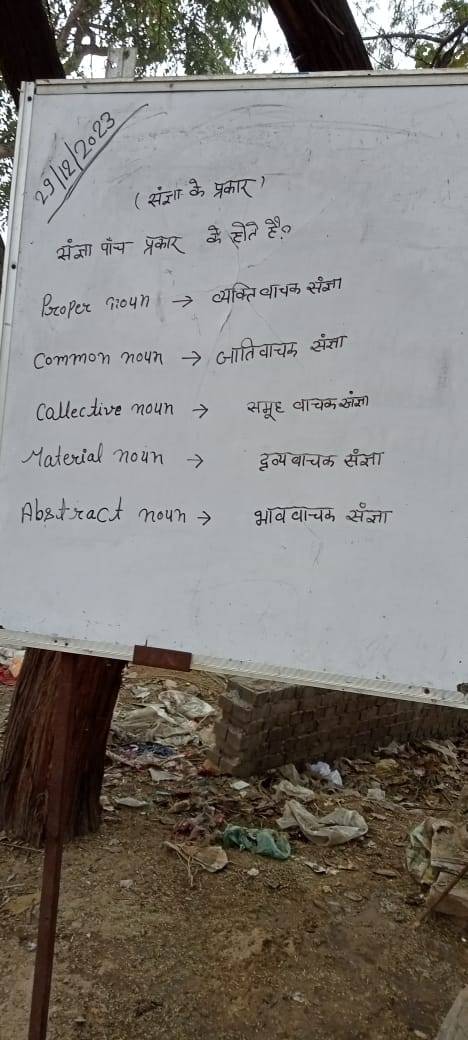 29/12/2023
(संज्ञा के प्रकार)
संज्ञा पाँच प्रकार के होते है०
Proper noun → व्यक्ति वाचक संज्ञा
Common noun → जातिवाचक संज्ञा
Callective noun → समूह वाचक संज्ञा
Material noun → द्रव्य वाचक संज्ञा
Abstract noun → भाव वाचक संज्ञा